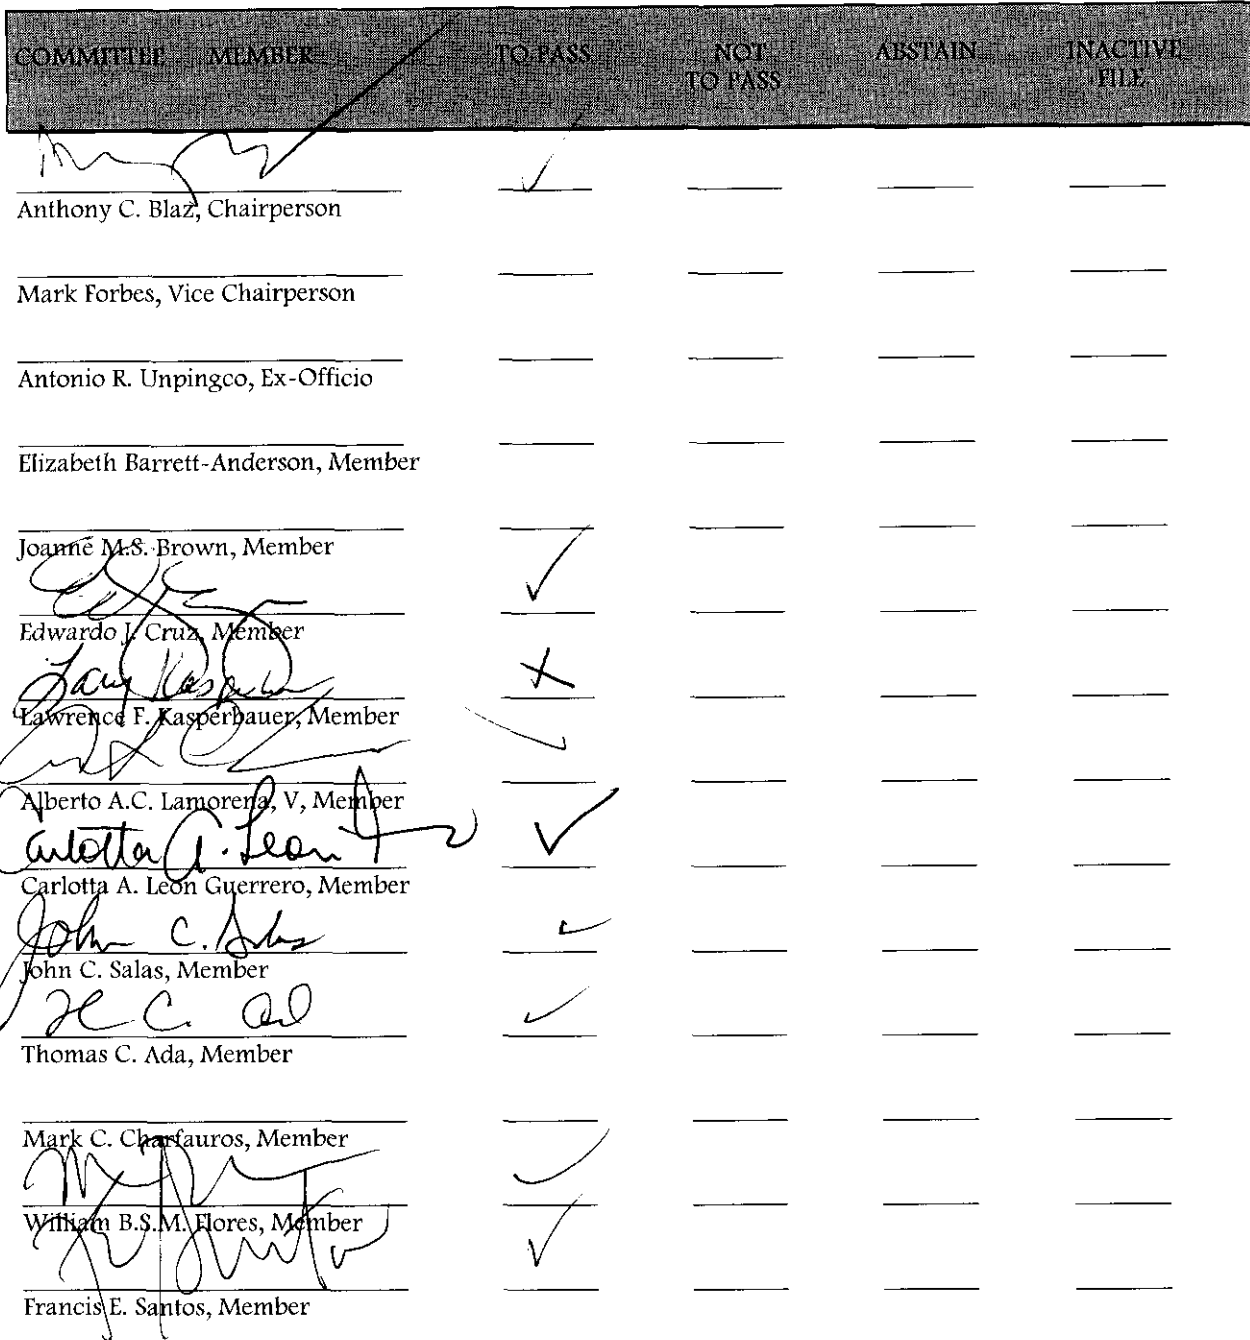 COMMITTEE MEMBER TO PASS NOT TO PASS ABSTAIN INACTIVE FILE
Anthony C. Blaz, Chairperson
Mark Forbes, Vice Chairperson
Antonio R. Unpingco, Ex-Officio
Elizabeth Barrett-Anderson, Member
Joanne M.S. Brown, Member
Edwardo J. Cruz, Member
Lawrence F. Kasperbauer, Member
Alberto A.C. Lamorena, V, Member
Carlotta A. Leon
Carlotta A. Leon Guerrero, Member
John C. Salas
John C. Salas, Member
Thomas C. Ada, Member
Mark C. Charfauros, Member
William B.S.M. Flores, Member
Francis E. Santos, Member